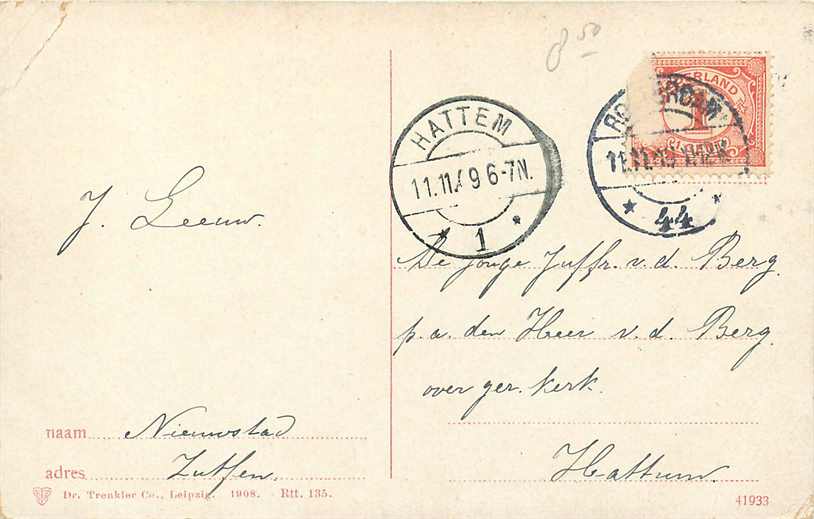 8 50
NEDERLAND
1
HATTEM
11.11/ 9 6-7N.
1
ROTTERDAM
11.11.
44
J. Leeuw.
De jonge Juffr. v. d. Berg.
p. a. den Heer v. d. Berg.
over ger. kerk.
Hattum.
naam Nieuwstad
adres Zutfen.
Dr. Trenkler Co., Leipzig. 1908. Rtt. 135.
41933